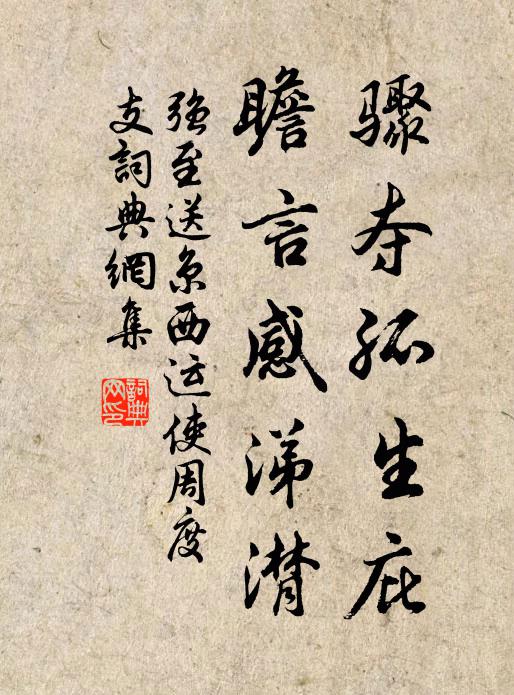 骤夺孤生庇
瞻言感涕潸
强至送京西运使周度
支詞典網集
詞典网印